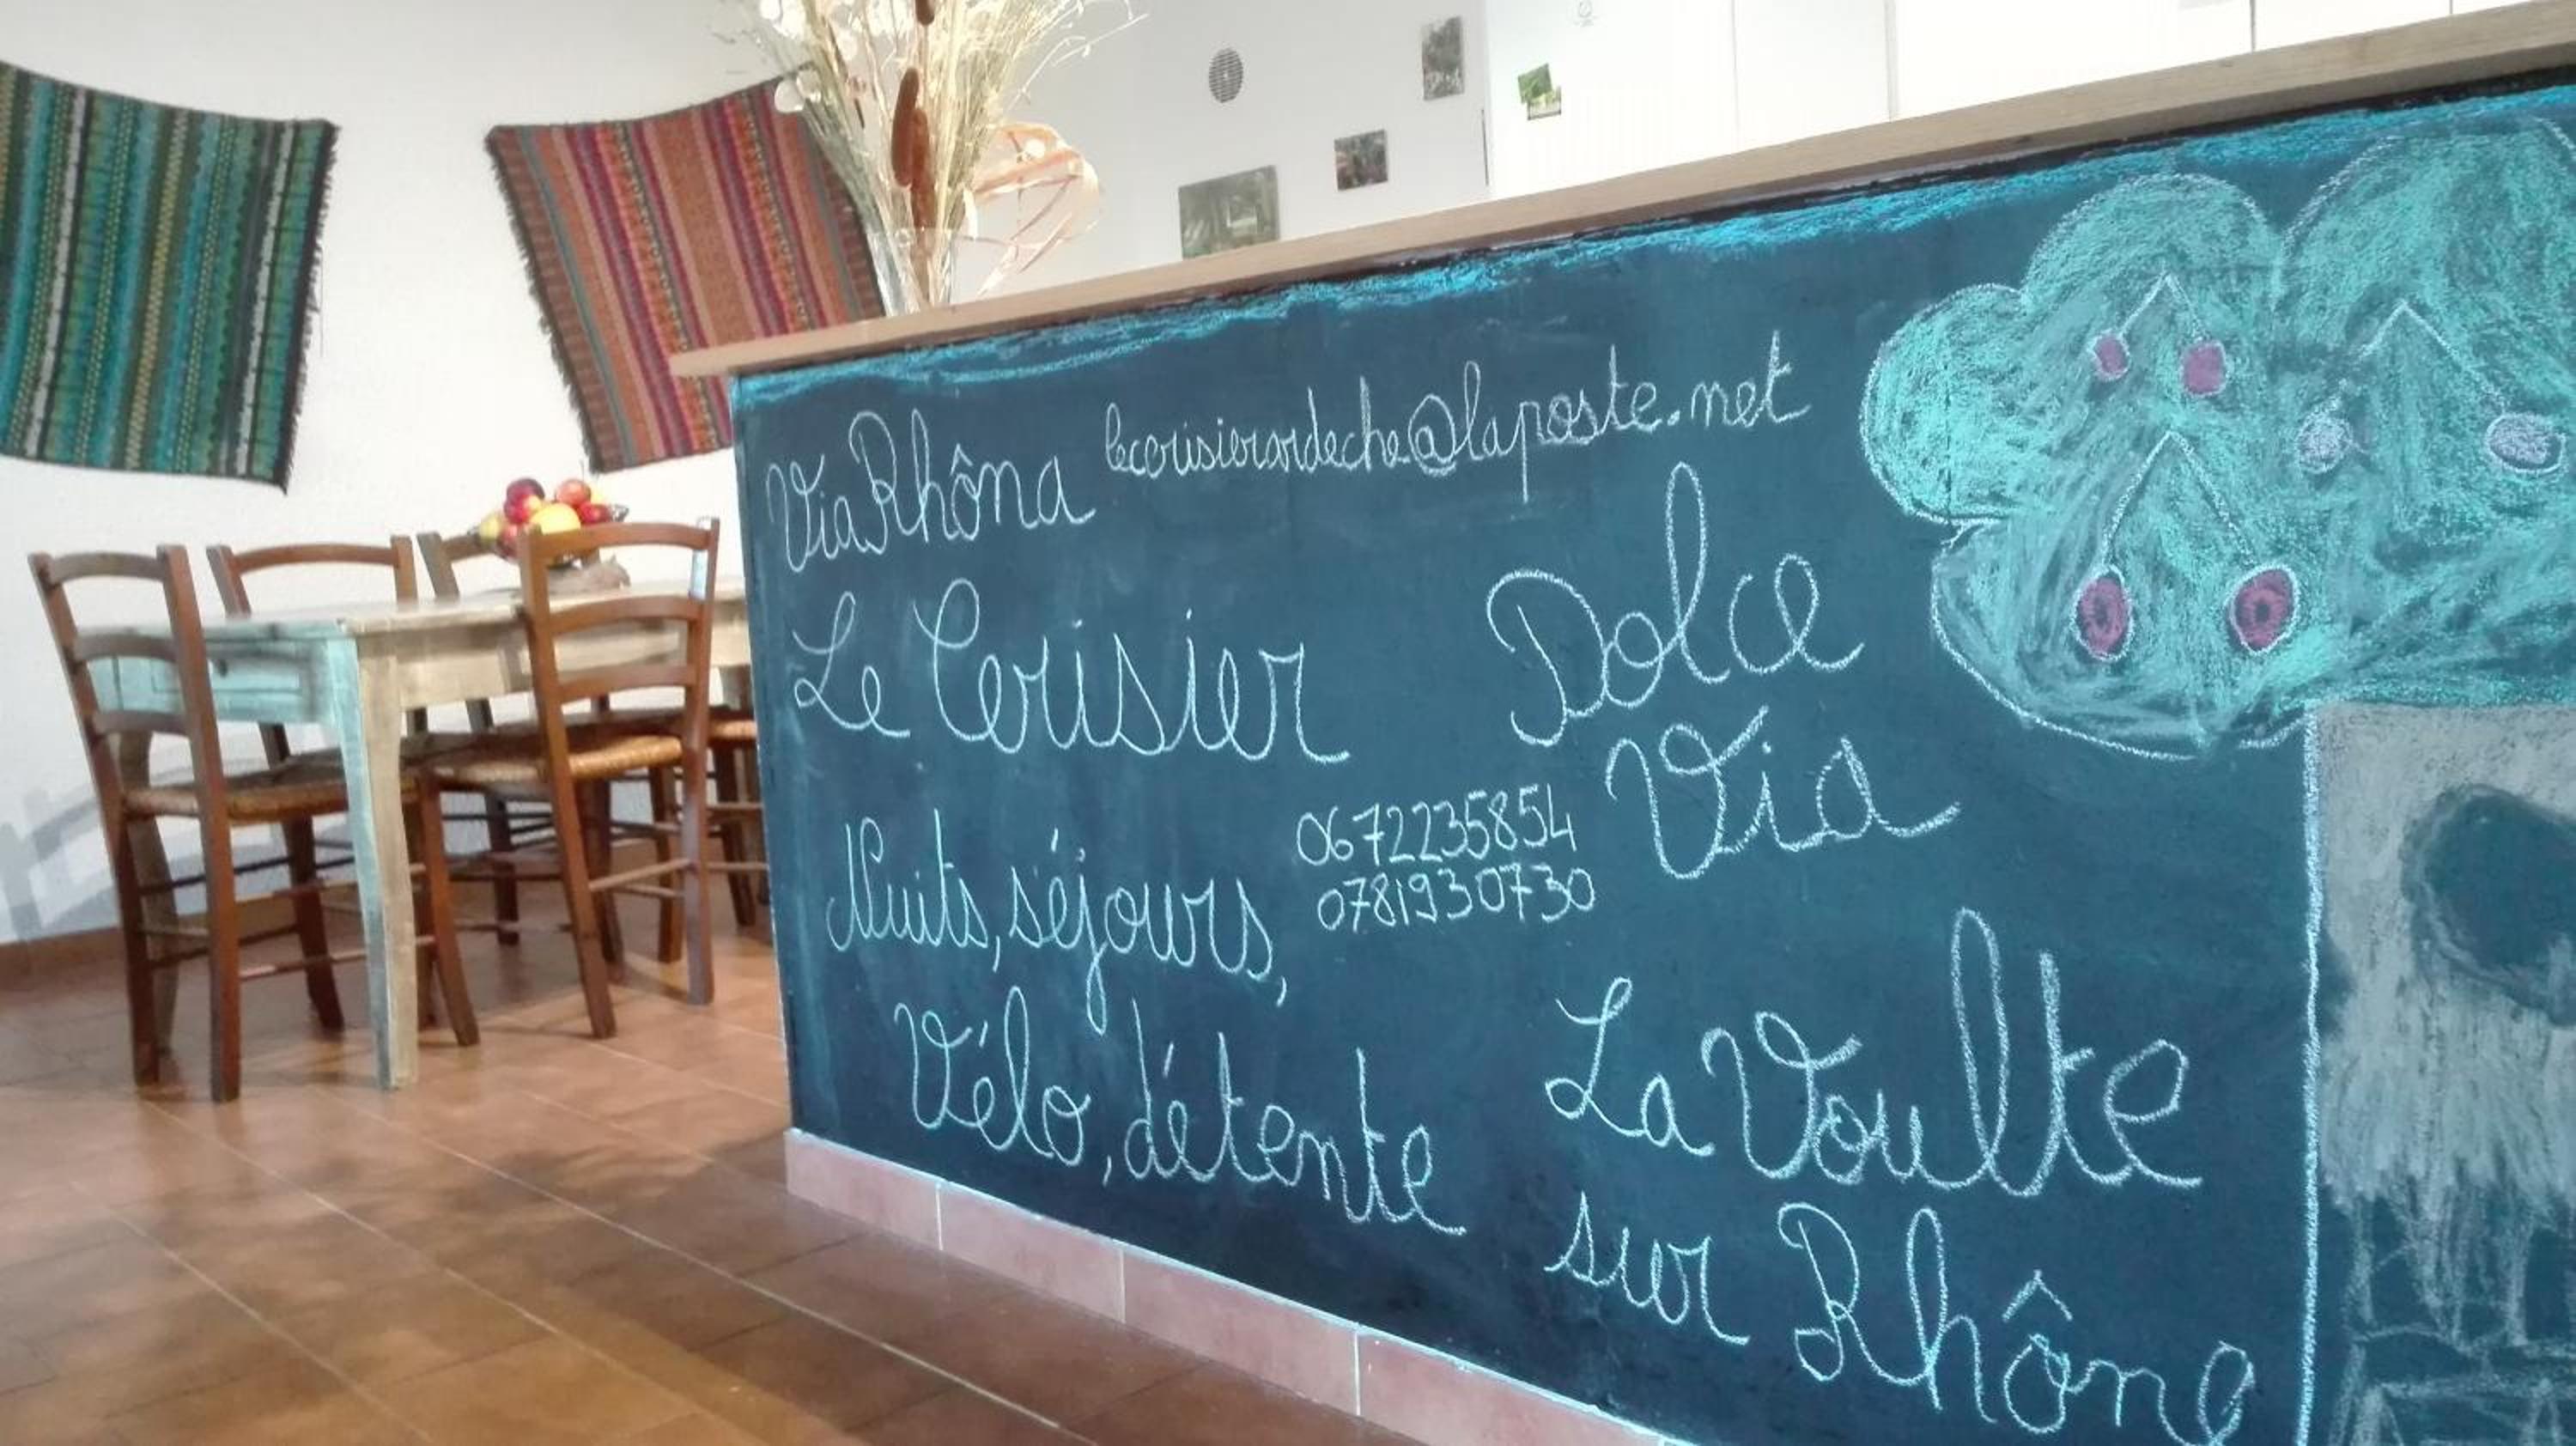 ViaRhôna
lecerisierardeche@laposte.net
Le Cerisier
Dolce
Via
0672235854
0781930730
Nuits, séjours,
Vélo, détente
La Voulte
sur Rhône